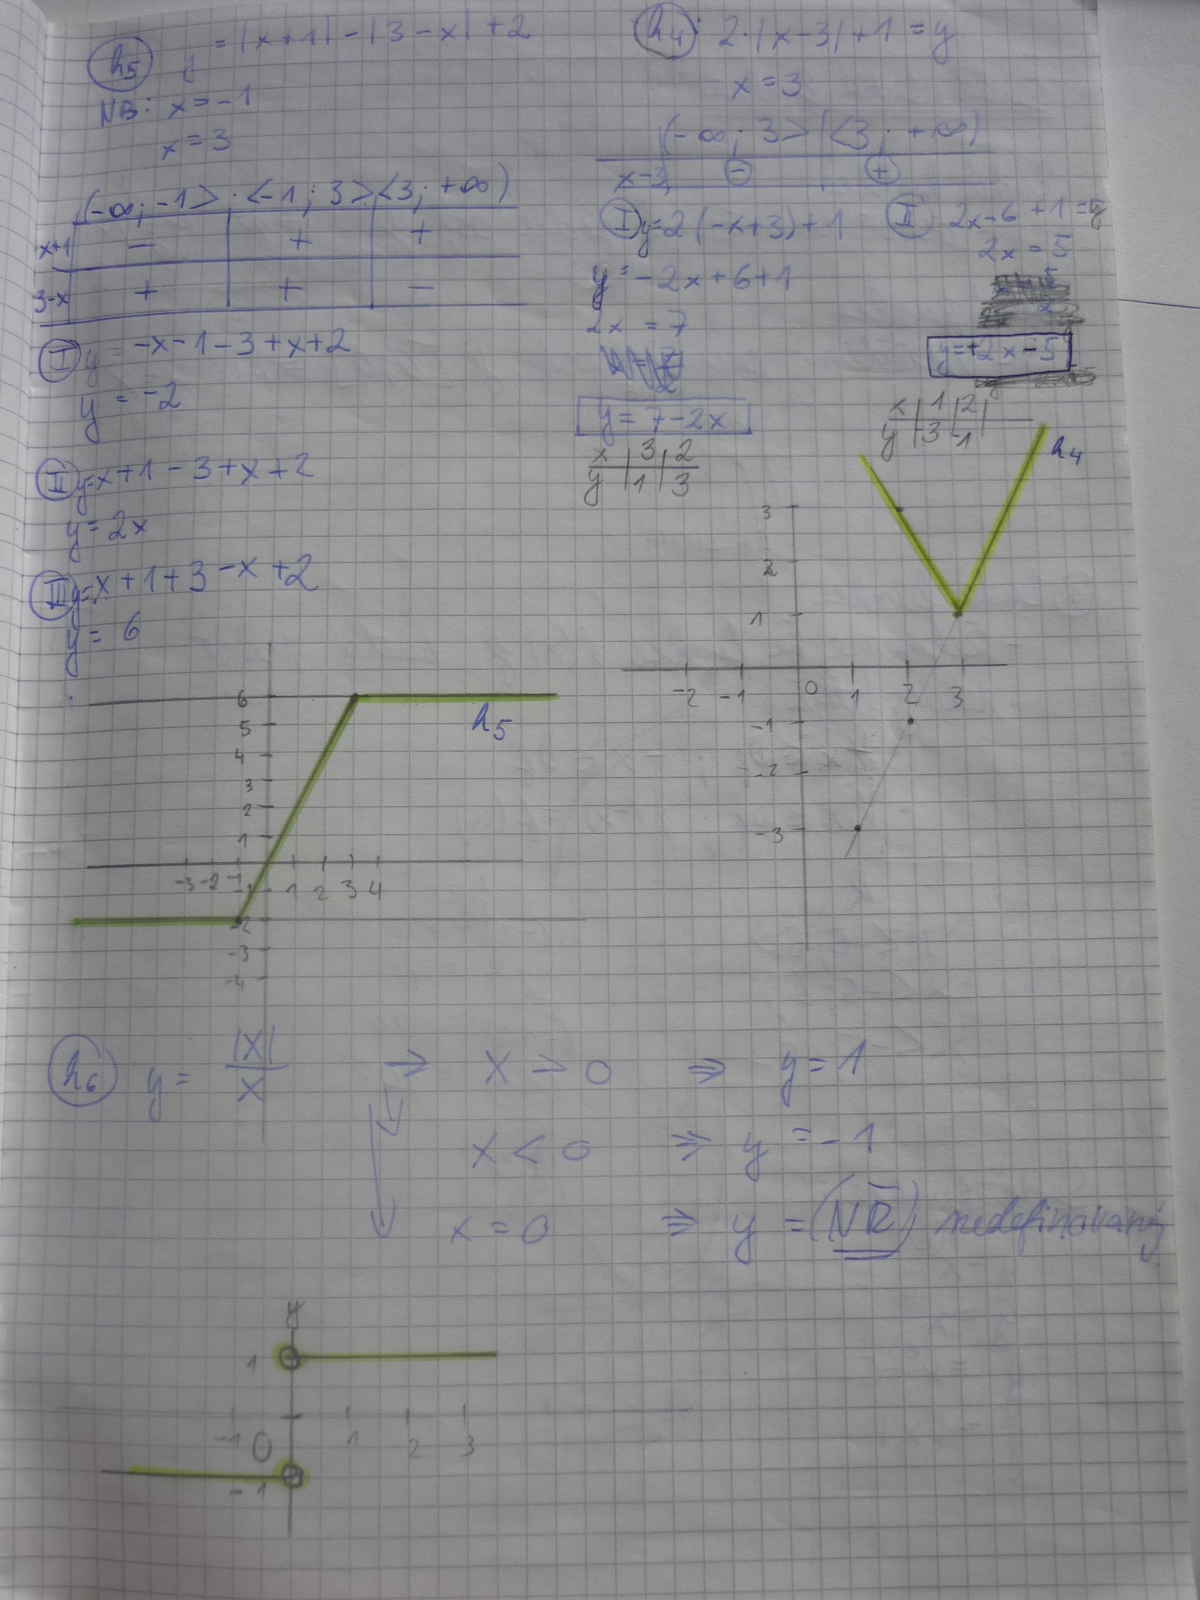 h5 y = |x+1| - |3-x| + 2
NB: x = -1
x = 3
(-∞; -1> <-1; 3> <3; +∞)
x+1 - + +
3-x + + -
I y = -x-1-3+x+2
y = -2
II y=x+1-3+x+2
y= 2x
III y=x+1+3-x+2
y= 6
6
5
4
3
2
1
-3 -2 -1 1 2 3 4
-1
-2
-3
-4
h5
h4: 2·|x-3|+1=y
x=3
(-∞; 3> <3; +∞)
x-3 - +
I y=2(-x+3)+1
y = -2x+6+1
2x = 7
y= 7-2x
x 3 2
y 1 3
II 2x-6+1=y
2x = 5
y=+2x-5
x 1 2
y 3 -1
h4
3
2
1
-2 -1 0 1 2 3
-1
-2
-3
h6 y = |x|/x → x > 0 ⇒ y = 1
x < 0 ⇒ y = -1
x = 0 ⇒ y = (NR) nedefinovaný
y
1
-1 0 1 2 3
-1